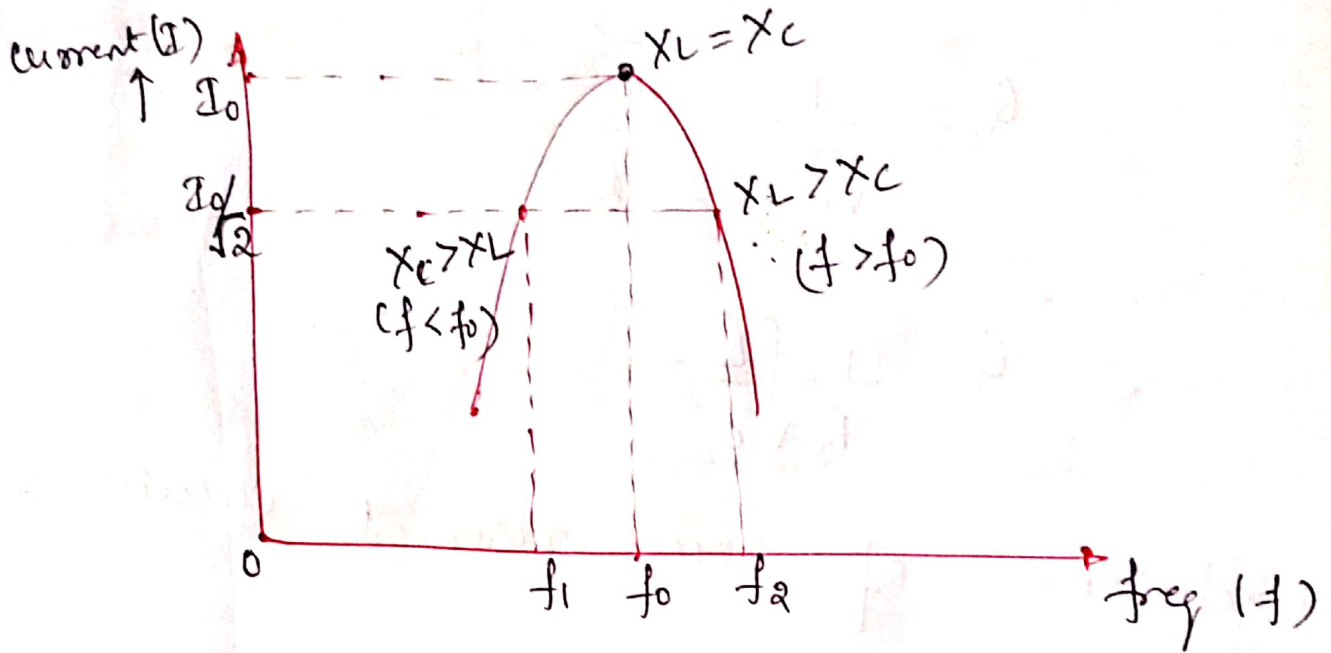 current (I)
↑
I₀
X_L = X_C
I₀/√2
X_L > X_C
(f > f₀)
X_C > X_L
(f < f₀)
0
f₁
f₀
f₂
freq (f)